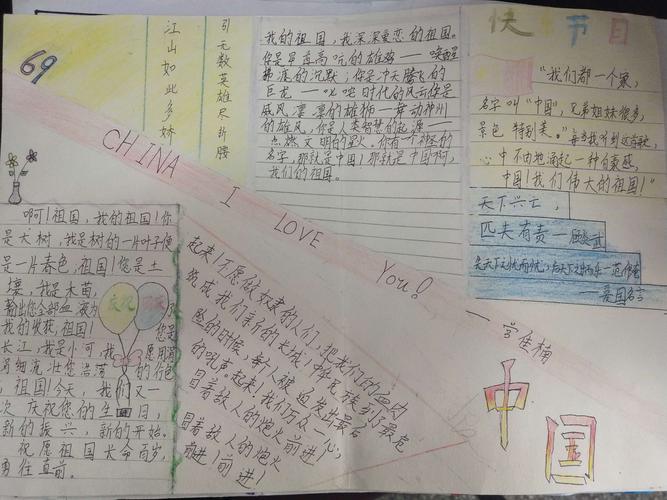 69
江山如此多娇
引无数英雄尽折腰
我的祖国，我深深爱恋的祖国。
你是昂首高吭的雄鸡——唤醒
拂晓的沉默；你是冲天腾飞的
巨龙——叱咤时代的风云你是
威风凛凛的雄狮——舞动神州
的雄风，你是人类智慧的起源——
点燃文明的星火。你有一个神圣的
名字，那就是中国！那就是中国啊，
我们的祖国。
快 节目
“我们都一个家，
名字叫“中国”，兄弟姐妹很多，
景色特别美。”每当我听到这首歌，
心中不由地涌起一种自豪感，
中国！我们伟大的祖国！”
天下兴亡，
匹夫有责——顾炎武
先天下之忧而忧，后天下之乐而乐—范仲淹
——爱国名言
CHINA I LOVE You!
啊！祖国，我的祖国！你
是大树，我是树的一片叶子你
是一片春色，祖国！您是土
壤，我是木苗，
输出您全部血液为
我的发获，祖国！您是
长江，我是小河，我愿用
细流壮您浩荡的行色
，祖国！今天，我们又一
次庆祝您的生日，
新的振兴，新的开始。
祝愿祖国长命百岁，
勇往直前。
庆祝
起来！不愿做奴隶的人们，把我们的血肉
筑成我们新的长城！中华民族到了最危
险的时候，每个人被迫发出最后
的吼声。起来！我们万众一心，
冒着敌人的炮火前进！
冒着敌人的炮火
前进！前进！
中国